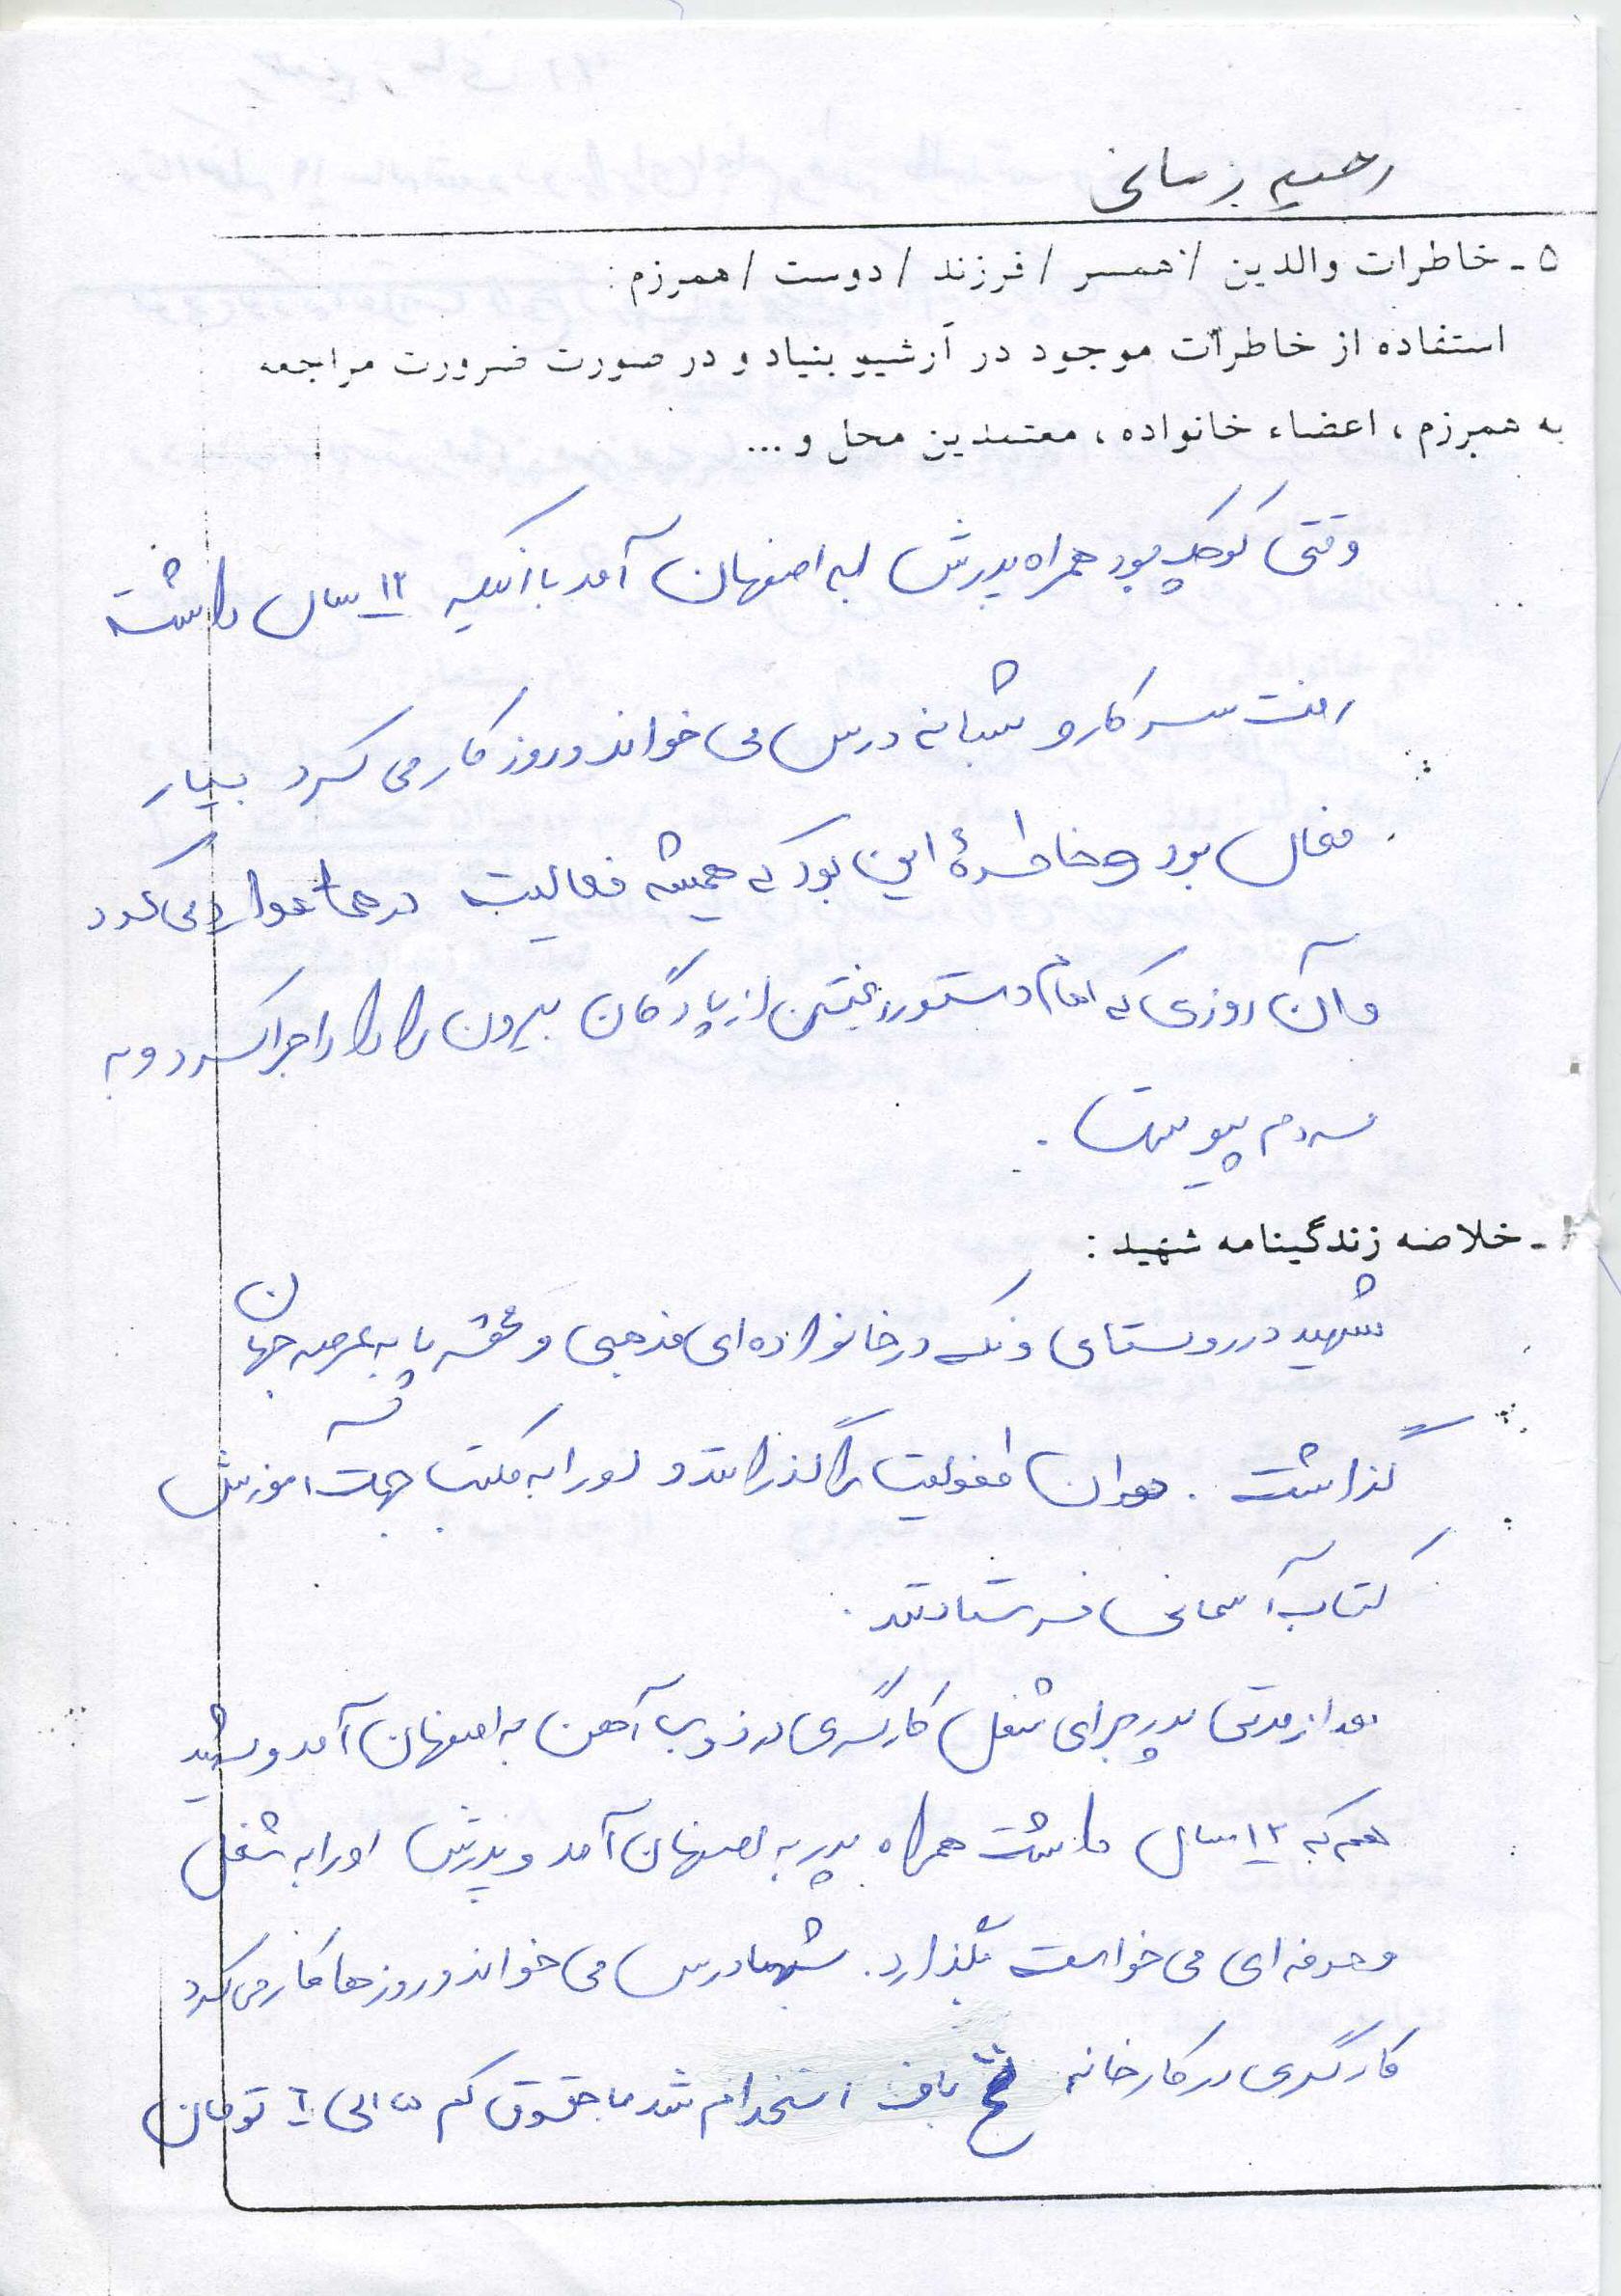 رحیم
۵ - خاطرات والدین / همسر / فرزند / دوست / همرزم :
استفاده از خاطرات موجود در آرشیو بنیاد و در صورت ضرورت مراجعه
به همرزم ، اعضاء خانواده ، معتمدین محل و ...
وقتی کوچک بود همراه پدرش به اصفهان آمد با اینکه ۱۲ سال داشت
رفت سر کار و شبانه درس می خواند و روز کار می کرد بسیار
فعال بود و خاطرهٔ این بود که همیشه فعالیت در می کرد
و آن روزی که امام دستور ریختن از پادگان بیرون را داد اجرا کرد و به
مردم پیوست .
- خلاصه زندگینامه شهید :
شهید در روستای ونک در خانواده ای مذهبی و پا به عرصه جهان
گذاشت . دوران طفولیت را گذراند و او را به مکتب جهت آموزش
کتاب آسمانی فرستادند .
بعد از مدتی پدر برای شغل کارگری در ذوب آهن به اصفهان آمد و شهید
هم که ۱۲ سال داشت همراه پدر به اصفهان آمد و پدرش او را به شغل
و حرفه ای می خواست بگذارد . شبها درس می خواند و روزها کار می کرد
کارگری در کارخانه باف استخدام شد با حقوق کم ۵ الی ۶ تومان